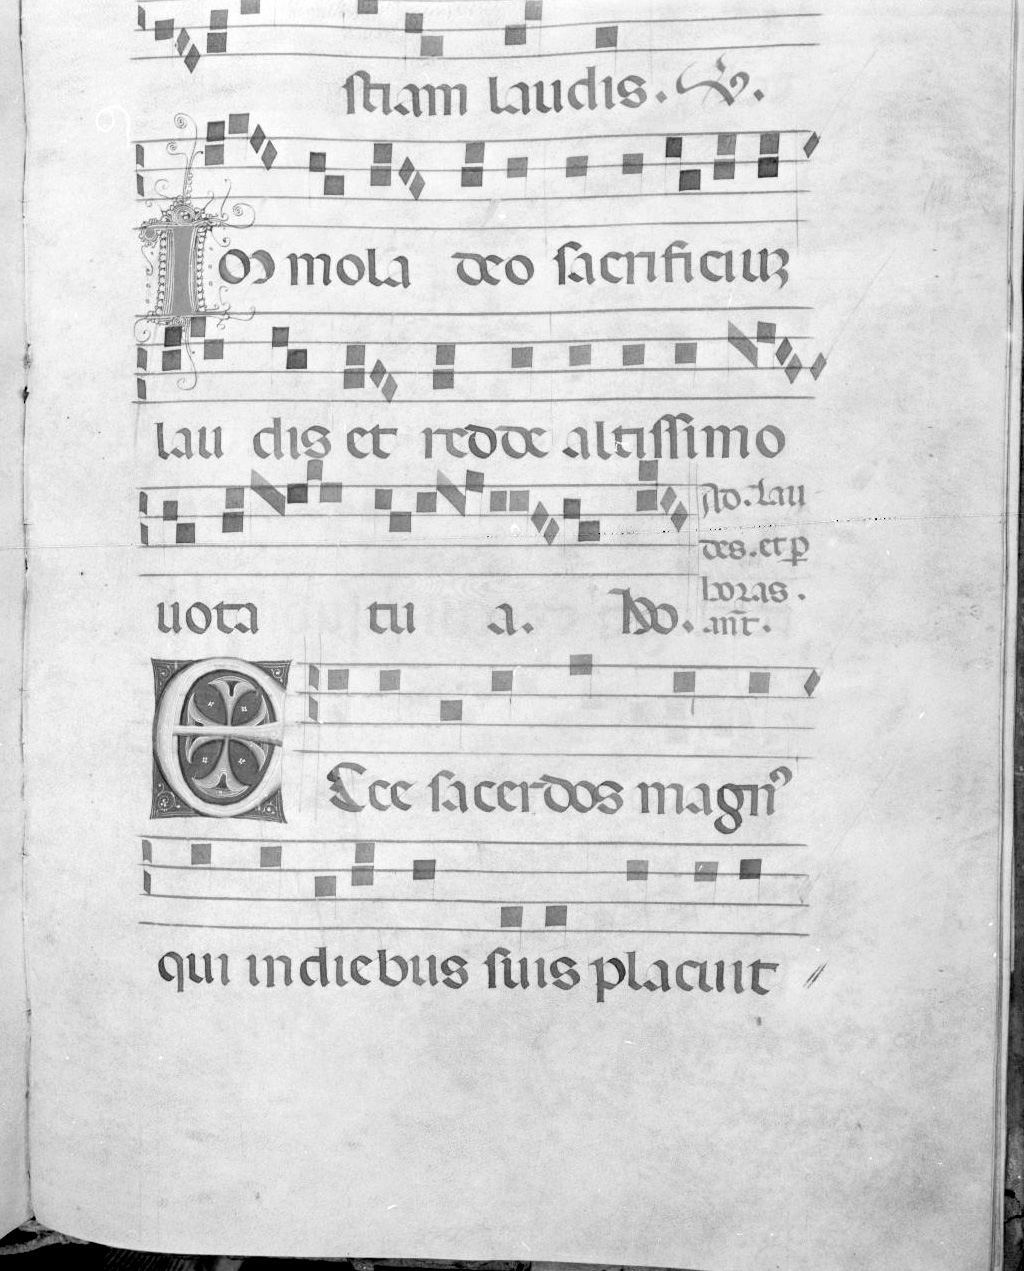 stiam laudis. V.
Im mola deo sacrificiuꝫ
lau dis et redde altissimo
uota tu a. Do.
ad. lau
des. et ꝑ
horas.
añt.
Ecce sacerdos magnꝰ
qui indiebus suis placuit //